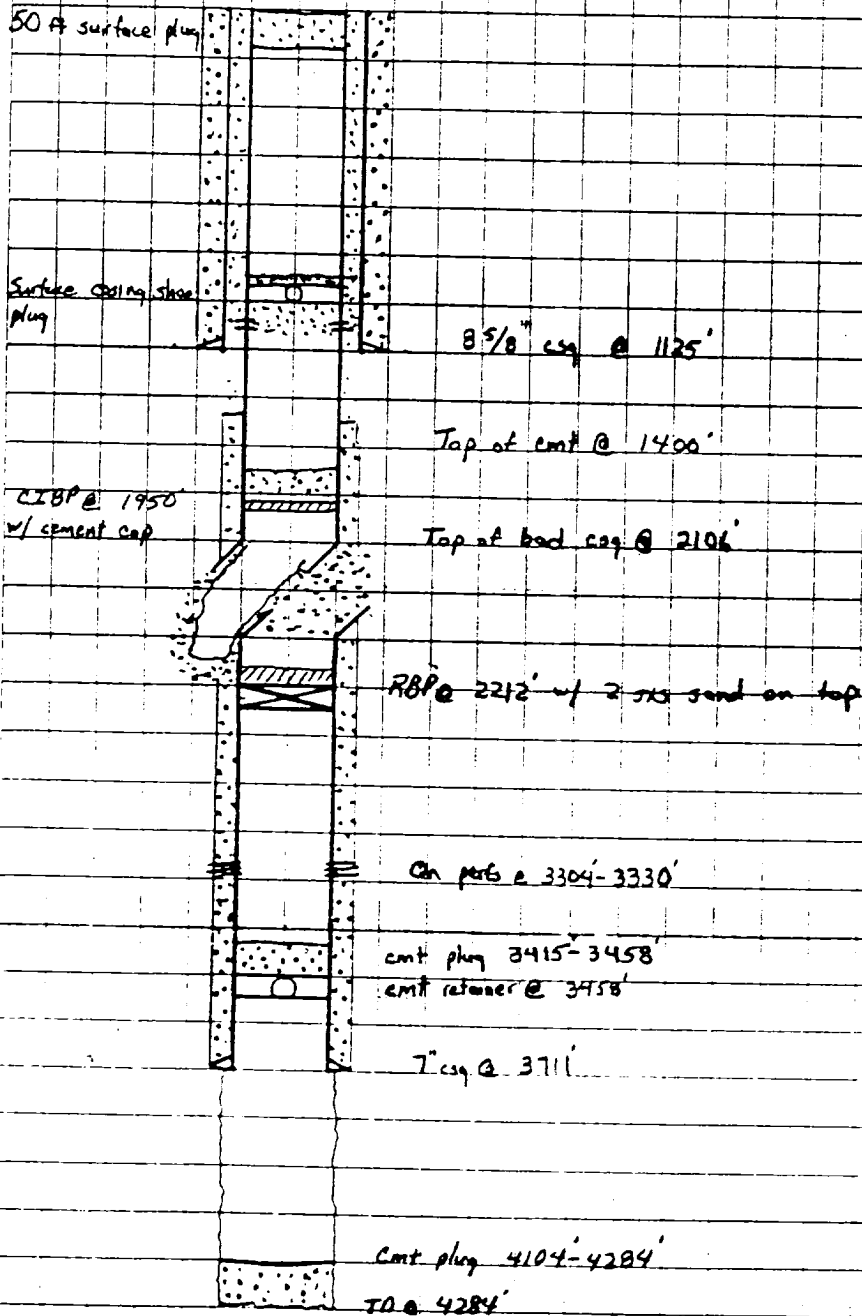 50 ft surface plug
Surface casing shoe
plug
8 5/8" csg @ 1125'
Top of cmt @ 1400'
CIBP @ 1950'
w/ cement cap
Top of bad csg @ 2106'
RBP @ 2212' w/ 2 sxs sand on top
perfs @ 3304'-3330'
cmt plug 3415'-3458'
cmt retainer @ 3458'
7" csg @ 3711'
Cmt plug 4104'-4284'
TD @ 4284'